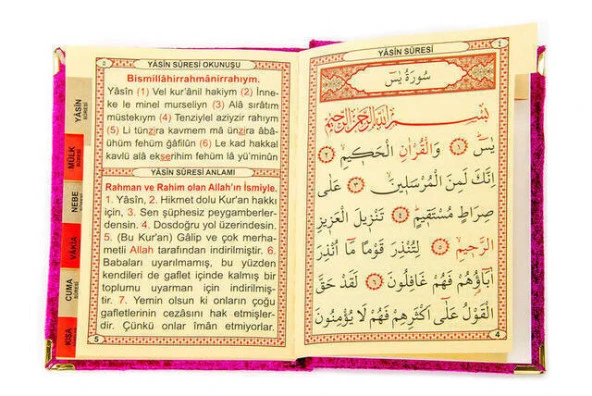 YÂSİN SÛRESİ OKUNUŞU
Bismillâhirrahmânirrahıym.
Yâsîn (1) Vel kur'ânil hakiym (2) İnne-
ke le minel murseliyn (3) Alâ sırâtım
müstekıym (4) Tenziylel aziyzir rahıym
(5) Li tünzira kavmem mâ ünzira âbâ-
ühüm fehüm gâfilûn (6) Le kad hakkal
kavlü alâ ekserihim fehüm lâ yü'minûn
YÂSİN SÛRESİ ANLAMI
Rahman ve Rahim olan Allah'ın İsmiyle.
1. Yâsîn, 2. Hikmet dolu Kur'an hakkı
için, 3. Sen şüphesiz peygamberler-
densin. 4. Dosdoğru yol üzerindesin.
5. (Bu Kur'an) Gâlip ve çok merha-
metli Allah tarafından indirilmiştir. 6.
Babaları uyarılmamış, bu yüzden
kendileri de gaflet içinde kalmış bir
toplumu uyarman için indirilmiş-
tir. 7. Yemin olsun ki onların çoğu
gafletlerinin cezâsını hak etmişler-
dir. Çünkü onlar îmân etmiyorlar.
5
YÂSİN SÛRESİ
MÜLK SÛRESİ
NEBE SÛRESİ
VÂKIA SÛRESİ
CUMA SÛRESİ
KISA
YÂSİN SÛRESİ
سُورَةُ يٰسٓ
بِسْمِ اللّٰهِ الرَّحْمٰنِ الرَّحِيمِ
يٰسٓ ﴿١﴾ وَالْقُرْاٰنِ الْحَكِيمِ ﴿٢﴾
اِنَّكَ لَمِنَ الْمُرْسَلِينَ ﴿٣﴾ عَلٰى
صِرَاطٍ مُسْتَقِيمٍ ﴿٤﴾ تَنْزِيلَ الْعَزِيزِ
الرَّحِيمِ ﴿٥﴾ لِتُنْذِرَ قَوْمًا مَٓا اُنْذِرَ
اٰبَٓاؤُهُمْ فَهُمْ غَافِلُونَ ﴿٦﴾ لَقَدْ حَقَّ
الْقَوْلُ عَلٰٓى اَكْثَرِهِمْ فَهُمْ لَا يُؤْمِنُونَ
4